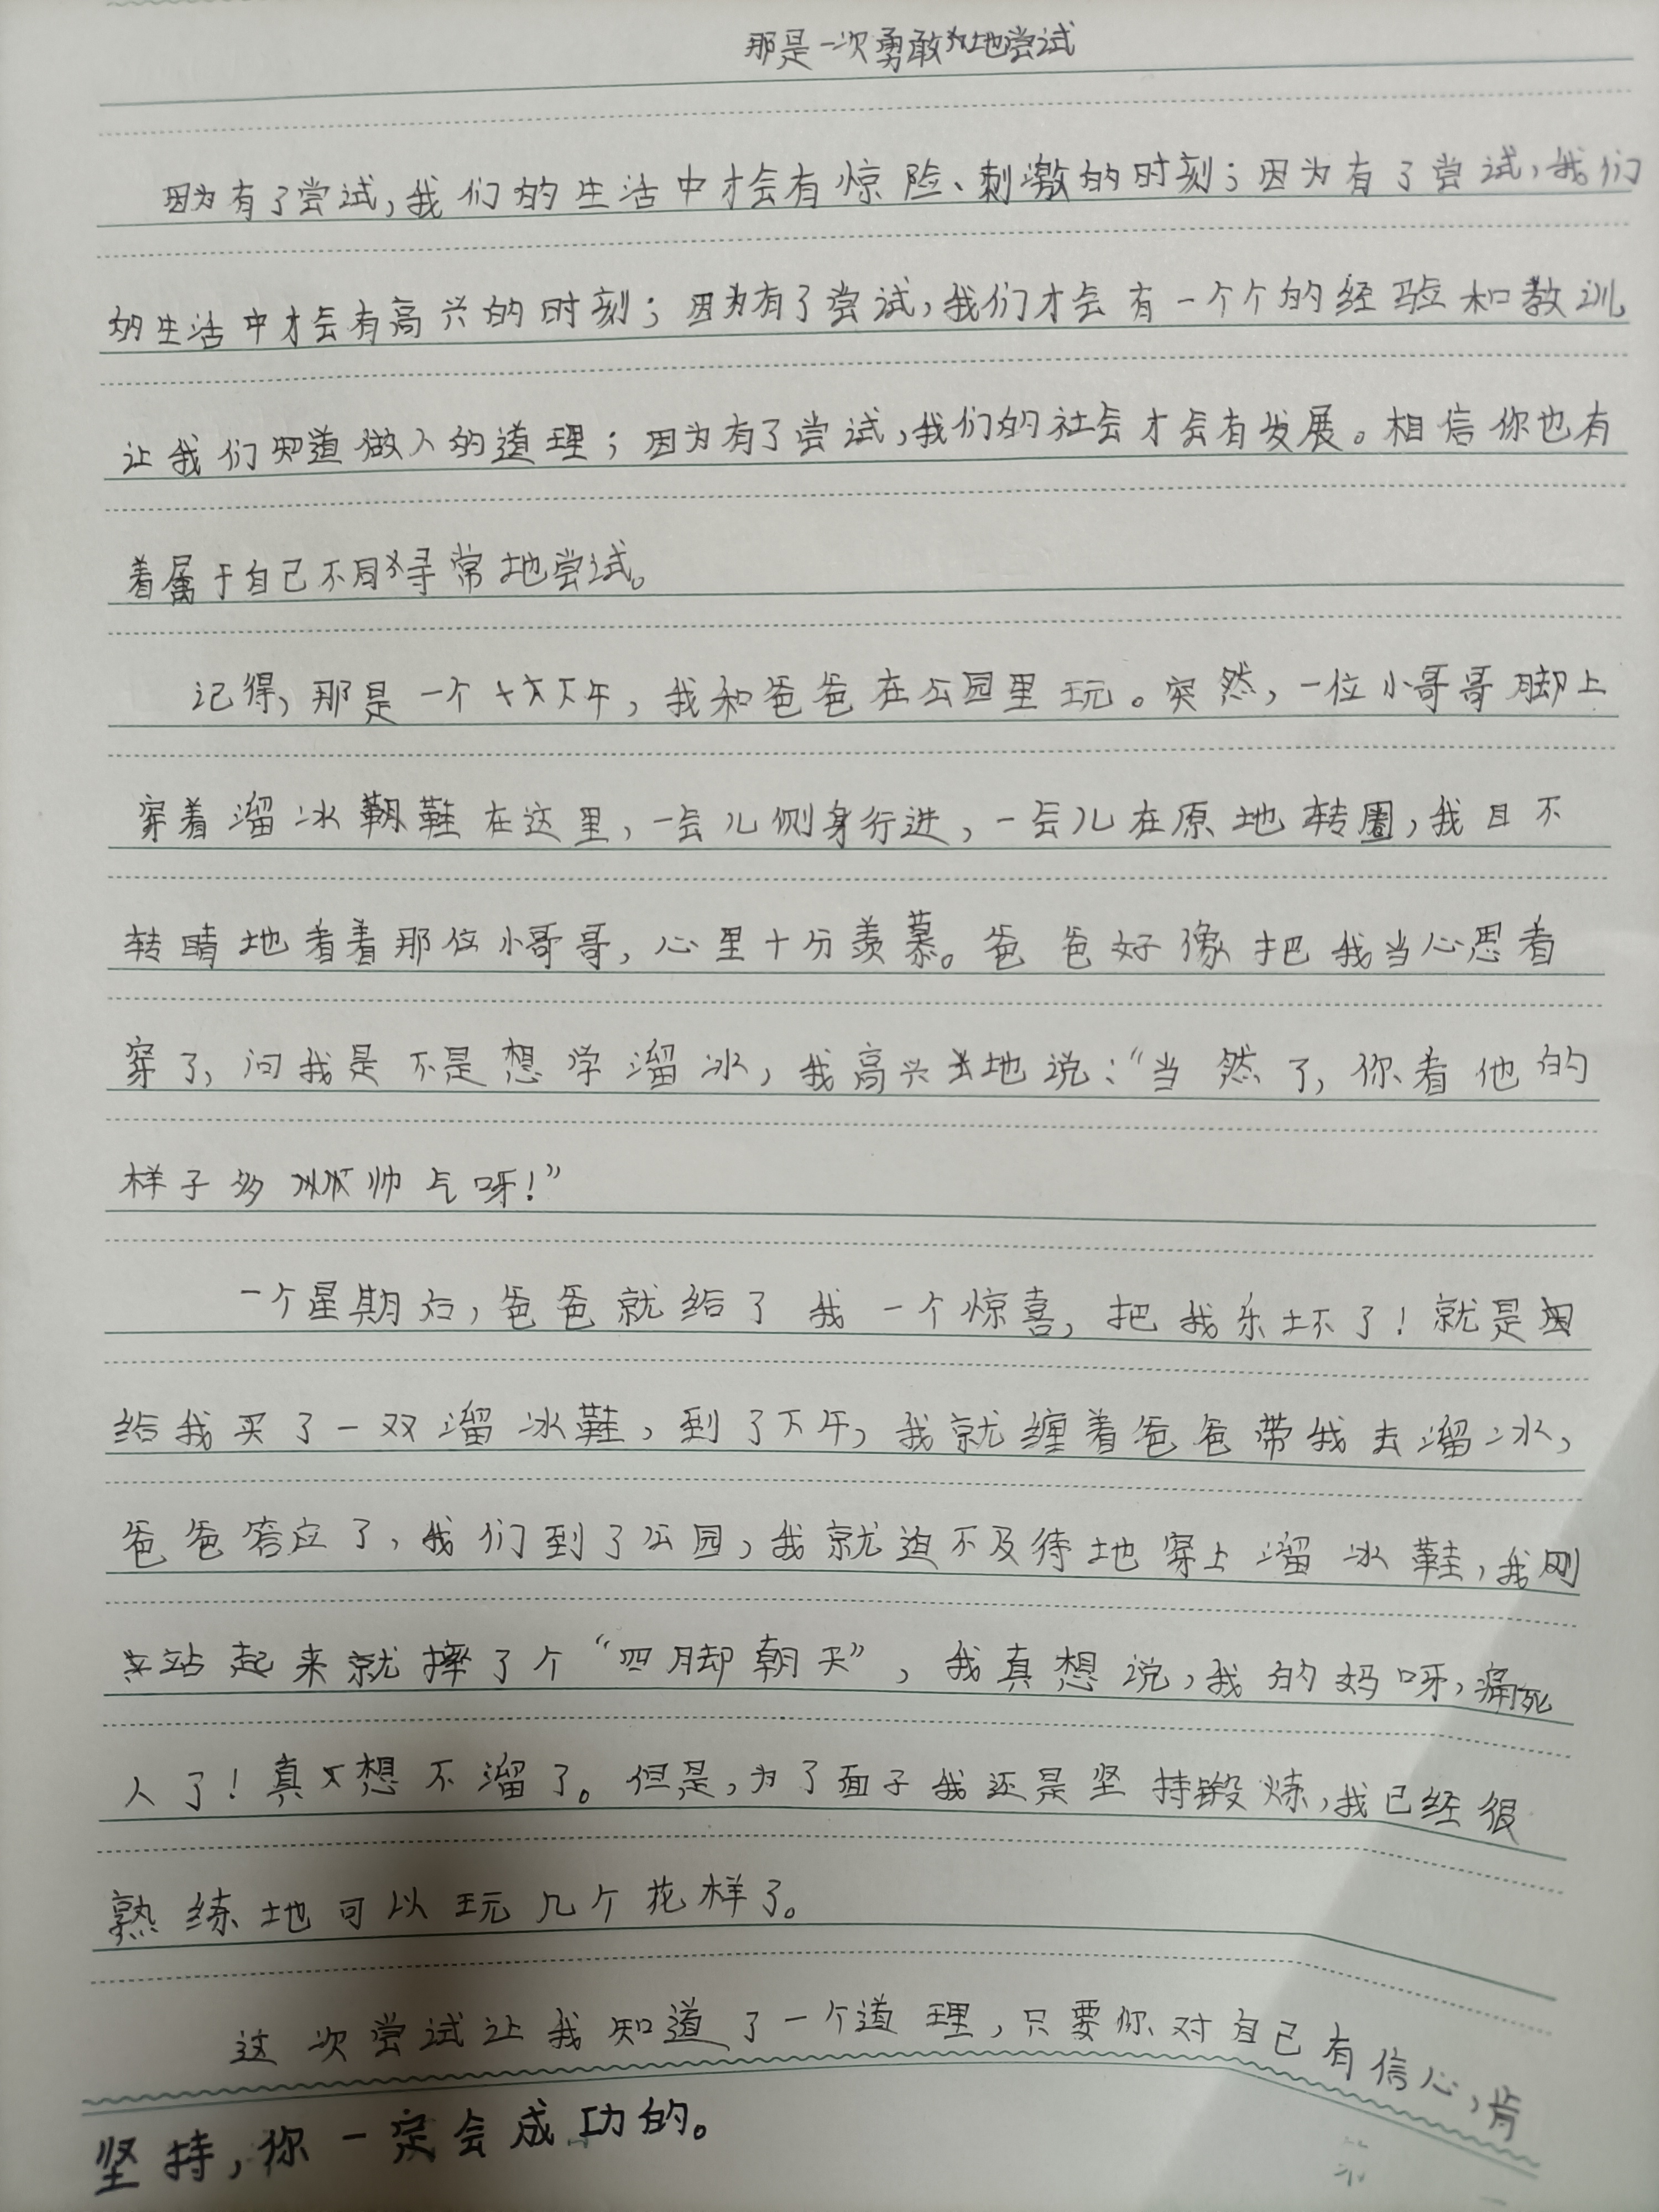 那是一次勇敢地尝试
因为有了尝试,我们的生活中才会有惊险、刺激的时刻;因为有了尝试,我们
的生活中才会有高兴的时刻;因为有了尝试,我们才会有一个个的经验和教训,
让我们知道做人的道理;因为有了尝试,我们的社会才会有发展。相信你也有
着属于自己不同寻常地尝试。
记得,那是一个下午,我和爸爸在公园里玩。突然,一位小哥哥脚上
穿着溜冰鞋在这里,一会儿侧身行进,一会儿在原地转圈,我目不
转睛地看着那位小哥哥,心里十分羡慕。爸爸好像把我当心思看
穿了,问我是不是想学溜冰,我高兴地说:“当然了,你看他的
样子多帅气呀!”
一个星期后,爸爸就给了我一个惊喜,把我乐坏了!就是
给我买了一双溜冰鞋,到了下午,我就缠着爸爸带我去溜冰,
爸爸答应了,我们到了公园,我就迫不及待地穿上溜冰鞋,我刚
站起来就摔了个“四脚朝天”,我真想说,我的妈呀,痛死
人了!真想不溜了。但是,为了面子我还是坚持锻炼,我已经很
熟练地可以玩几个花样了。
这次尝试让我知道了一个道理,只要你对自己有信心,肯
坚持,你一定会成功的。
第